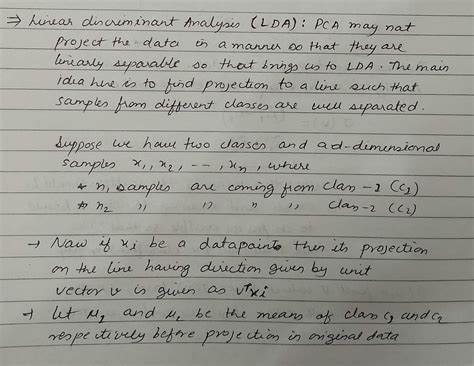 ⇒ Linear discriminant Analysis (LDA): PCA may not
project the data in a manner so that they are
linearly separable so that brings us to LDA. The main
idea here is to find projection to a line such that
samples from different classes are well separated.
Suppose we have two classes and a d-dimensional
samples x₁, x₂, --, xₙ, where
* n₁ samples are coming from class-1 (C₁)
* n₂ ,, ,, ,, ,, class-2 (C₂)
→ Now if xᵢ be a datapoint then its projection
on the line having direction given by unit
vector v is given as vᵀxᵢ
→ let μ₁ and μ₂ be the means of class C₁ and C₂
respectively before projection in original data